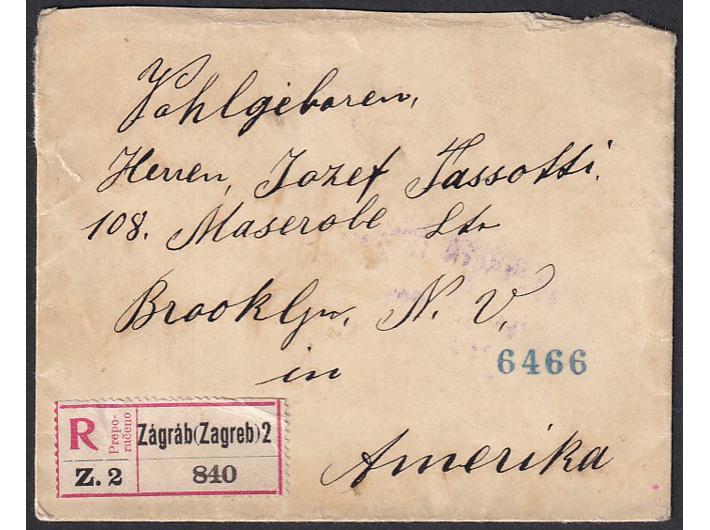 Vohlgeboren,
Herren, Jozef Tassotti.
108. Maserobe Str
Brooklyn, N. V,
in
6466
Amerika
R
Prepo-
ručeno
Zágráb(Zagreb)2
Z. 2
840